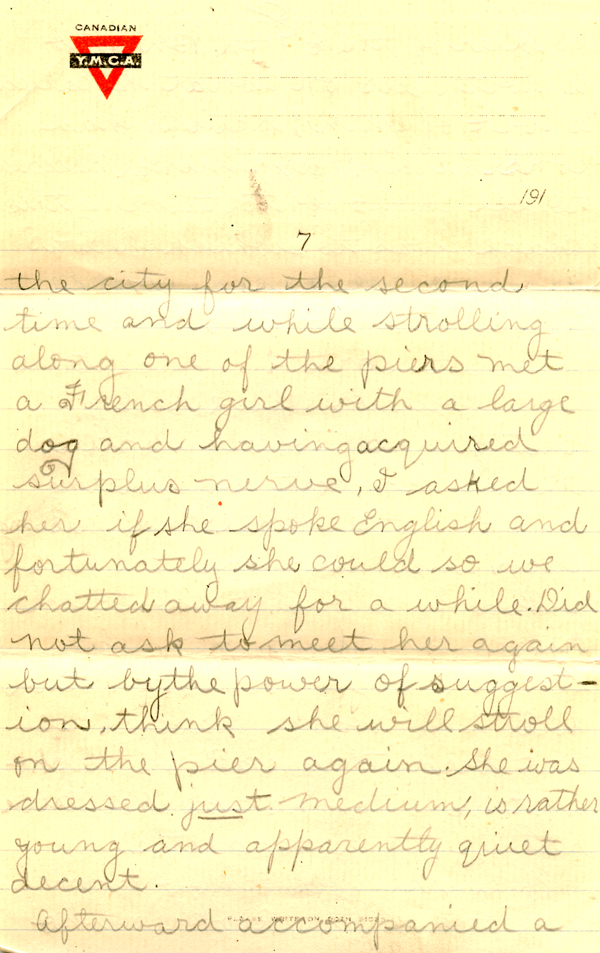 CANADIAN
Y.M.C.A.
191
7
the city for the second
time and while strolling
along one of the piers met
a French girl with a large
dog and having acquired
surplus nerve, I asked
her if she spoke English and
fortunately she could so we
chatted away for a while. Did
not ask to meet her again
but by the power of suggest-
ion, think she will stroll
on the pier again. She was
dressed just medium, is rather
young and apparently quiet
decent.
PLEASE WRITE ON BOTH SIDES
Afterward accompanied a